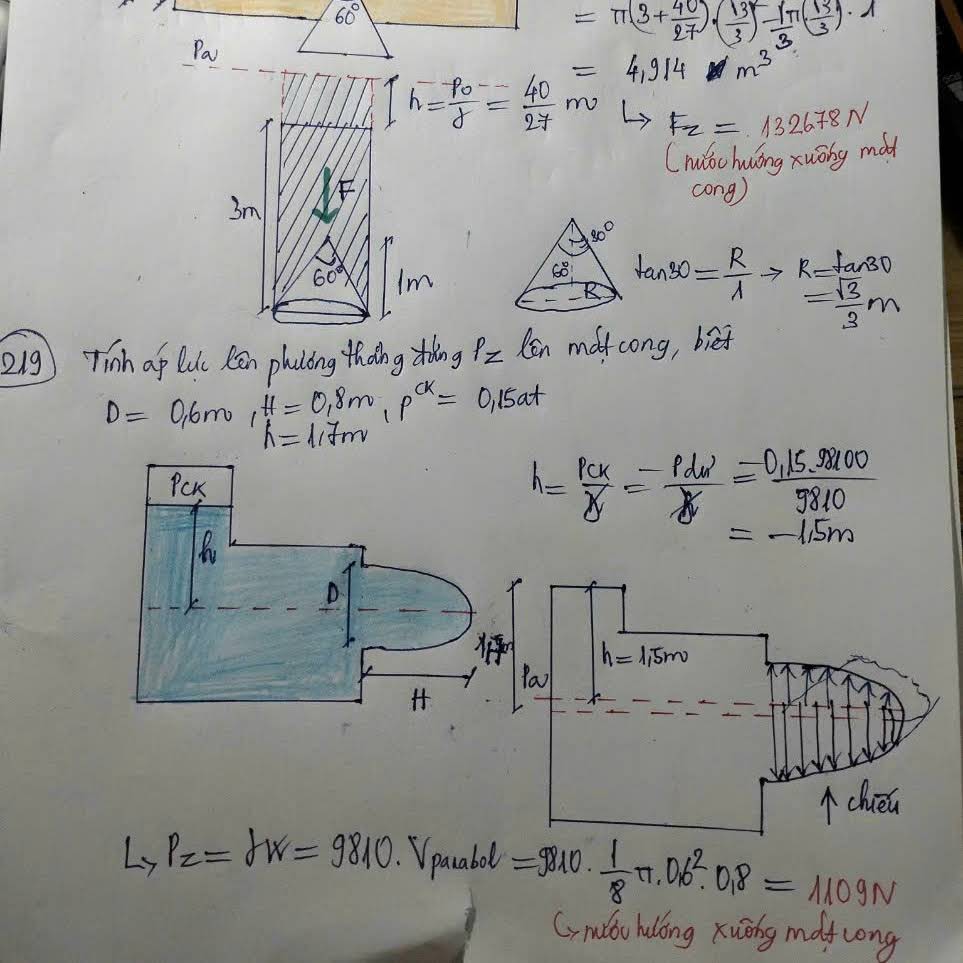 60°
= π(3+40/27).(√3/3)² - 1/3π(√3/3)².1
Pa
= 4,914 m³
h = Po/γ = 40/27 m
↳ Fz = 132678N
(nước hướng xuống mặt
cong)
3m
F
60°
1m
30°
60°
R
tan30 = R/1 → R = tan30
= √3/3 m
219 Tính áp lực lên phương thẳng đứng Pz lên mặt cong, biết
D = 0,6m, H = 0,8m, pCK = 0,15at
h = 1,7m
PCK
h = PCK/γ = -Pdư/γ = -0,15.98100/9810
= -1,5m
h
D
H
h = 1,5m
Pa
↑ chiếu
↳ Pz = γW = 9810. Vparabol = 9810. 1/8 π.0,6².0,8 = 1109N
↳ nước hướng xuống mặt cong